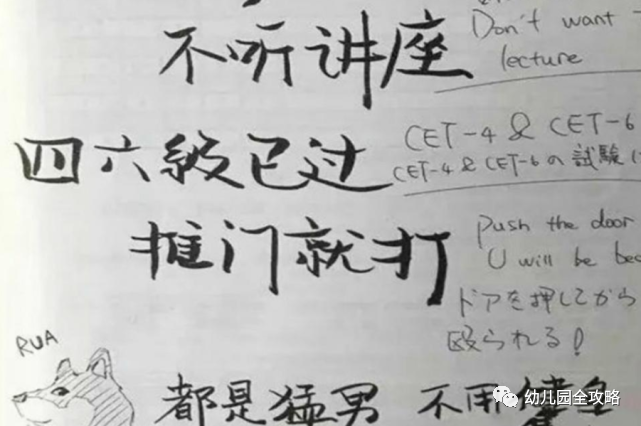 不听讲座
Don't want
lecture
四六级已过
CET-4 & CET-6
CET-4 & CET-6の試験
推门就打
push the door
U will be
ドアを押してから
殴られる!
RUA
都是猛男 不用
幼儿园全攻略